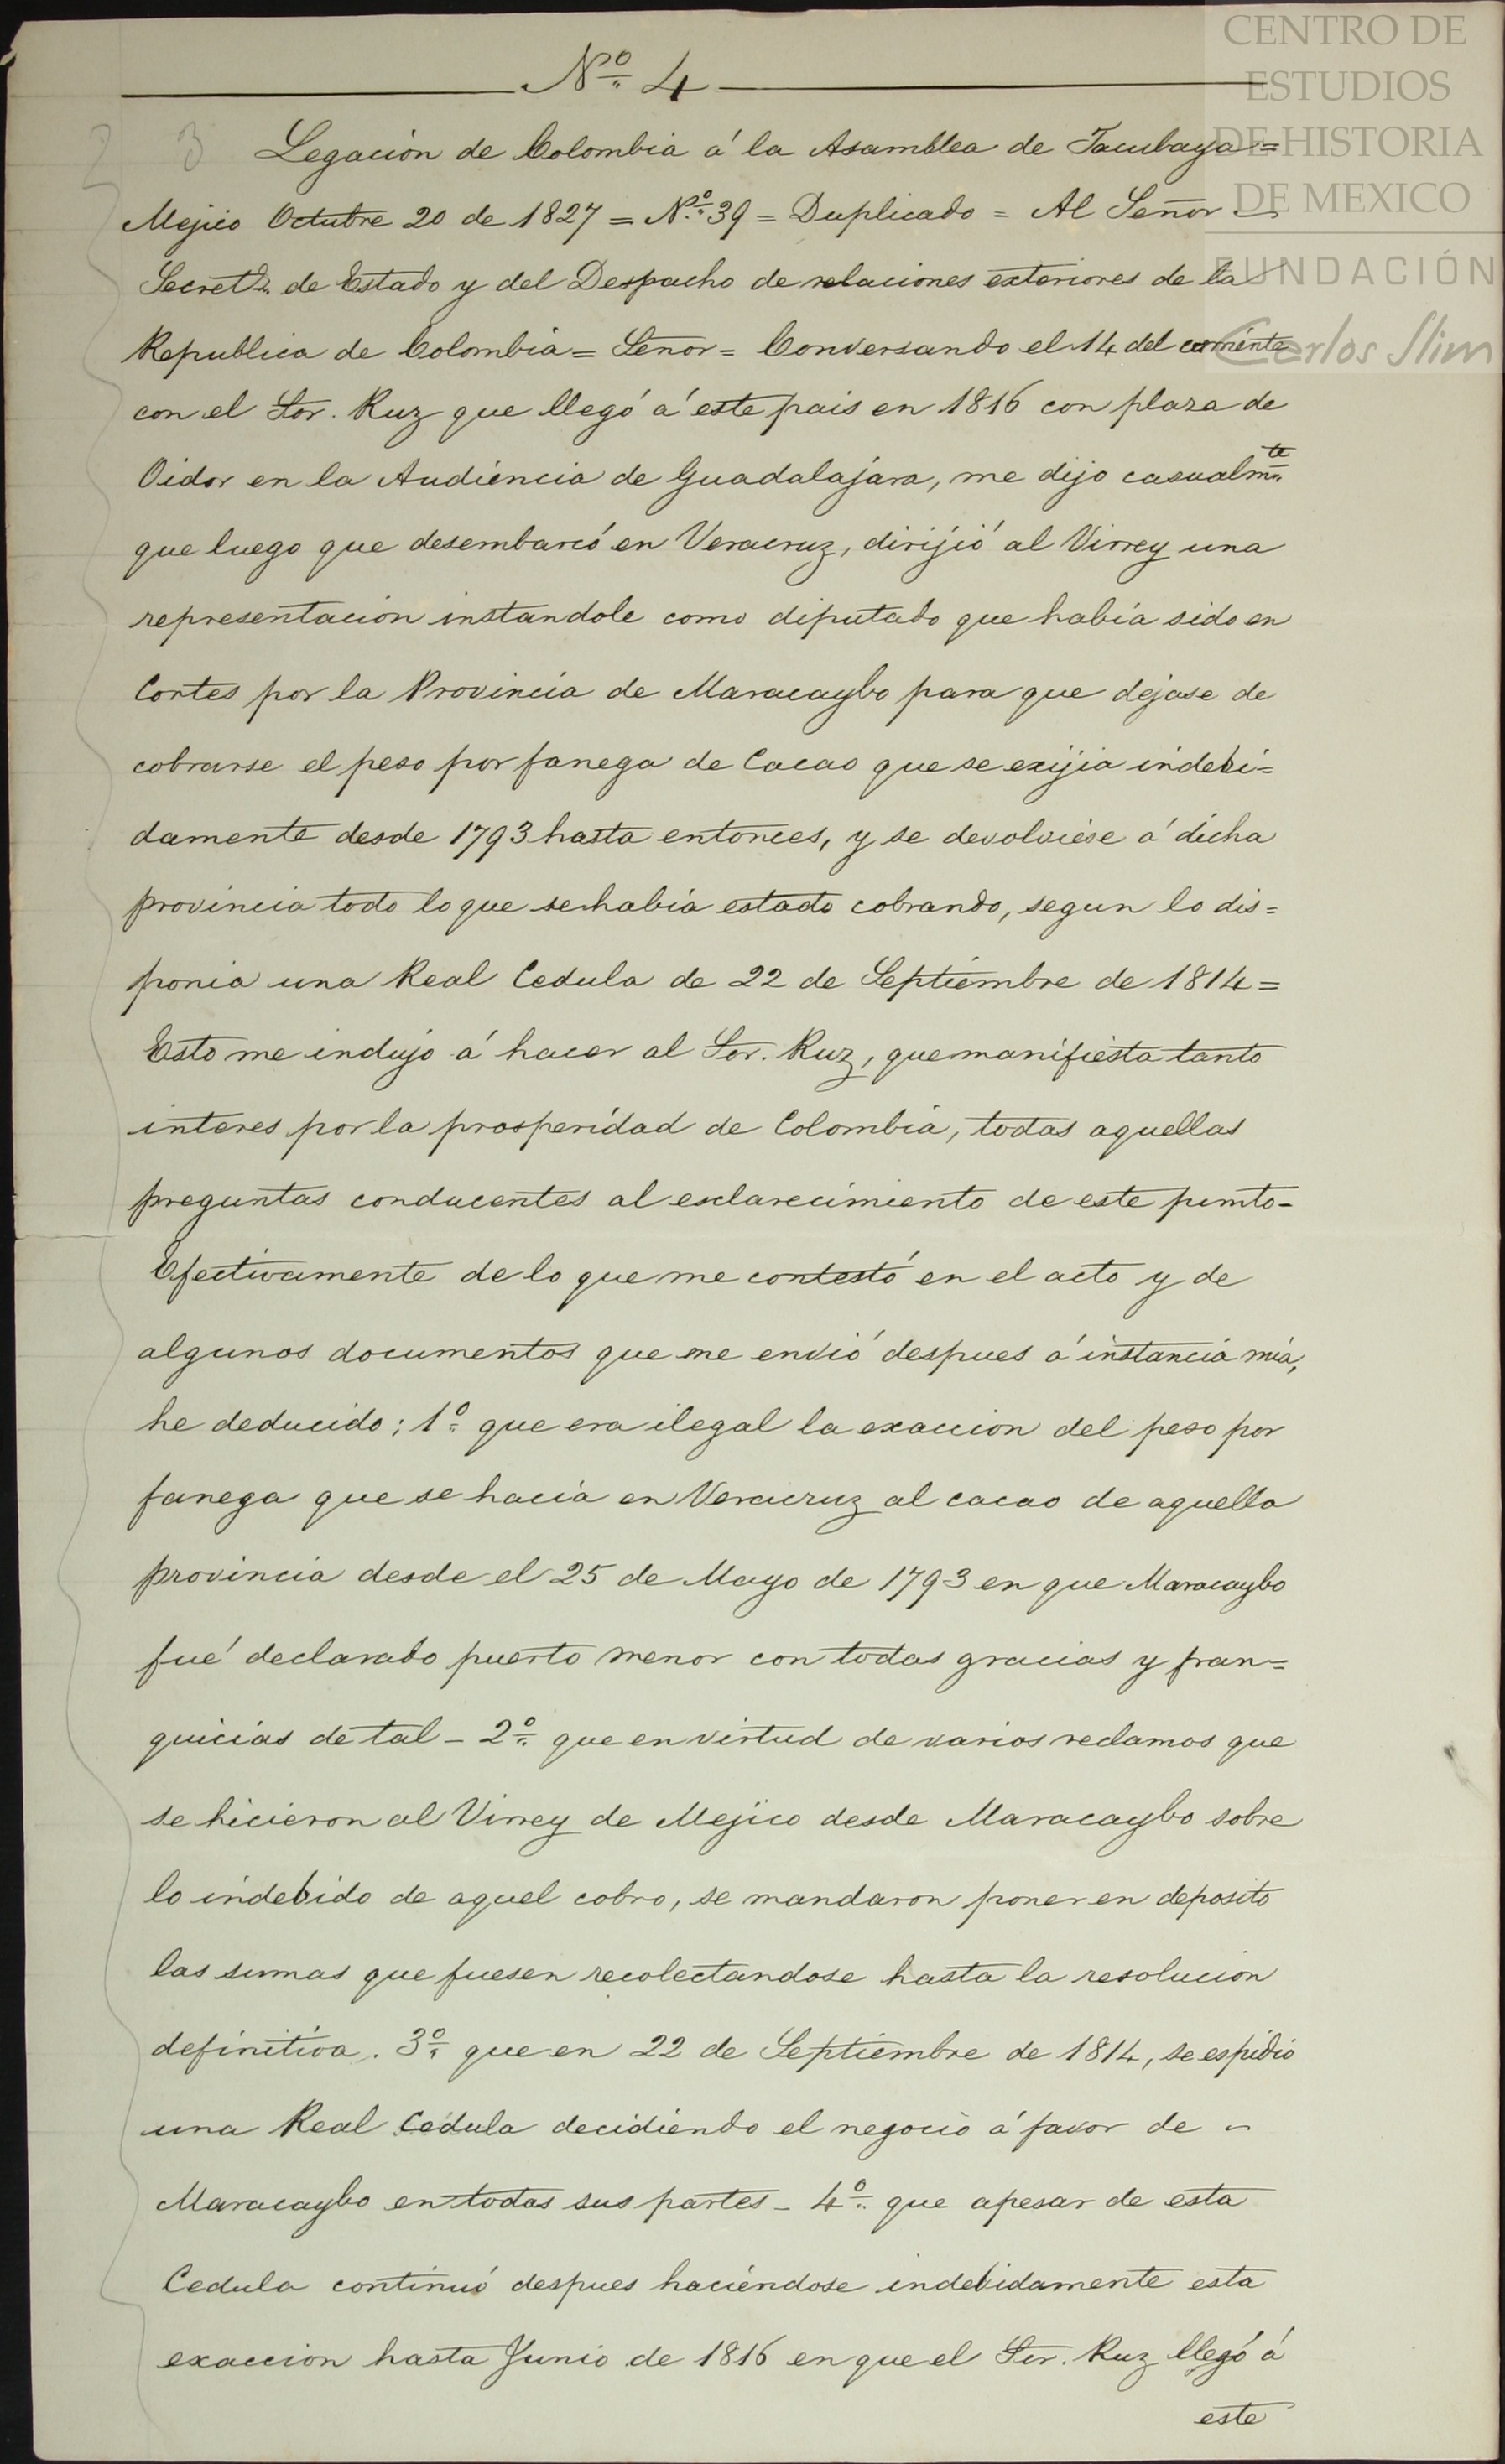 CENTRO DE
ESTUDIOS
DE HISTORIA
DE MEXICO
FUNDACIÓN
Carlos Slim
Nº 4
3 Legacion de Colombia á la Asamblea de Tacubaya =
Mejico Octubre 20 de 1827 = Nº 39 = Duplicado = Al Señor -
Secretº de Estado y del Despacho de relaciones exteriores de la
Republica de Colombia = Señor = Conversando el 14 del corriente
con el Sor. Ruz que llegó á este pais en 1816 con plaza de
Oidor en la Audiencia de Guadalajara, me dijo casualmte
que luego que desembarcó en Veracruz, dirijió al Virrey una
representacion instandole como diputado que habia sido en
Cortes por la Provincia de Maracaybo para que dejase de
cobrarse el peso por fanega de Cacao que se exijia indebi=
damente desde 1793 hasta entonces, y se devolviese á dicha
provincia todo lo que se habia estado cobrando, segun lo dis=
ponia una Real Cedula de 22 de Septiembre de 1814 =
Esto me indujo á hacer al Sor. Ruz, que manifiesta tanto
interes por la prosperidad de Colombia, todas aquellas
preguntas conducentes al esclarecimiento de este punto -
Efectivamente de lo que me contestó en el acto y de
algunos documentos que me envió despues á instancia mia,
he deducido; 1º que era ilegal la exaccion del peso por
fanega que se hacia en Veracruz al cacao de aquella
provincia desde el 25 de Mayo de 1793 en que Maracaybo
fué declarado puerto menor con todas gracias y fran=
quicias de tal - 2º que en virtud de varios reclamos que
se hicieron al Virrey de Mejico desde Maracaybo sobre
lo indebido de aquel cobro, se mandaron poner en deposito
las sumas que fuesen recolectandose hasta la resolucion
definitiva. 3º que en 22 de Septiembre de 1814, se espidio
una Real Cedula decidiendo el negocio á favor de -
Maracaybo en todas sus partes - 4º que apesar de esta
Cedula continuó despues haciendose indebidamente esta
exaccion hasta Junio de 1816 en que el Sor. Ruz llegó á
este